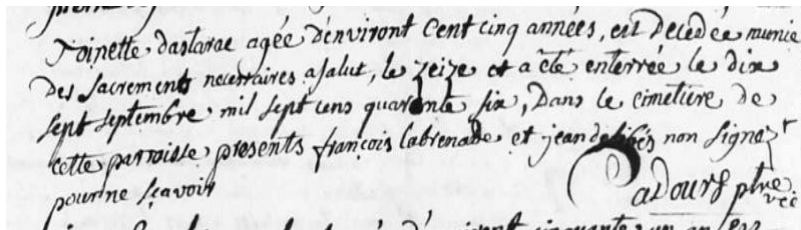 Toinette dastarac agée d'environt Cent cinq années, est decedée munie
des sacrements necessaires a salut, le zeize et a été enterrée le dix
sept septembre mil sept cens quarente six, Dans le cimetiere de
cette parroisse presents françois labrenade et jean non signez
pour ne sçavoir
adours ptre
vic
d'environt cinquante un